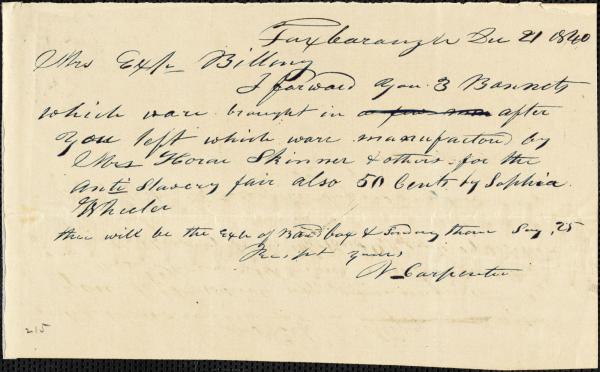 Foxborough Dec 21 1840
Mrs Exp Billing
I forward you 3 Bonnets
which ware brought in a few min after
you left which ware manufactord by
Mrs Horac Skinner & others for the
Anti Slavery fair also 50 Cents by Sophia
Wheeler
thare will be the Exp of Bandbox & Sending them Say ,25
yours
N Carpenter
215